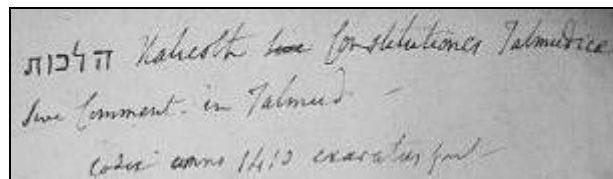 הלכות Halicoth sive Constitutiones Talmudicae
sive Comment. in Talmud -
Codex anno 1413 exaratus fuit